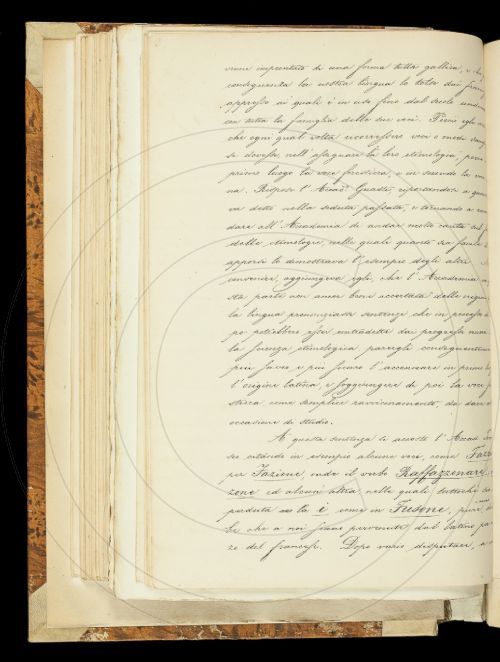 viene improntato di una forma tutta gallica, e
conseguenza la nostra lingua la tolse dai
appresso ai quali è in uso fino dal secolo
con tutta la famiglia delle sue voci. Perciò egli
che ogni qual volta ricorressero voci e modi
si dovesse nell'assegnare la loro etimologia, porre
primo luogo la voce forestiera, e in secondo la
na. Rispose l'Accad. Guasti, riportandosi a
va detto nella seduta passata, e tornando a
dare all'Accademia di andar molto cauta
delle etimologie, nelle quali quanto sia facile
apporsi lo dimostrava l'esempio degli altri.
convenire, aggiungeva egli, che l'Accademia
sta parte non ancor bene accertata delle
la lingua pronunziasse sentenze che in processo
po potrebbero esser contradette dai progressi
la scienza etimologica, parergli conseguentemente
più savio e più sicuro l'accennare in primo
l'origine latina, e soggiungere di poi la voce
stiera, come semplice ravvicinamento, da dare
occasione di studio.
A questa sentenza si accostò l'Accad.
ses citando in esempio alcune voci, come
per Fazione, onde il verbo Raffazzonare,
zone ed alcuni altri, nelle quali
perduta la i, come in Fusone,
be che a noi fosse pervenuto dal latino per
zo del francese. Dopo varie dispute,